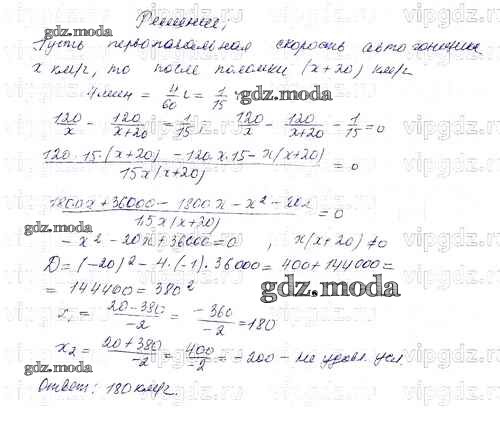 Решение:
Пусть первоначальная скорость автогонщика
x км/г, то после поломки (x+20) км/г
4 мин = 4/60 г = 1/15 г
gdz.moda
120/x - 120/(x+20) = 1/15; 120/x - 120/(x+20) - 1/15 = 0
(120·15·(x+20) - 120x·15 - x(x+20))/(15x(x+20)) = 0
gdz.moda
(1800x + 36000 - 1800x - x² - 20x)/(15x(x+20)) = 0
gdz.moda
- x² - 20x + 36000 = 0, x(x+20) ≠ 0
D = (-20)² - 4·(-1)·36000 = 400 + 144000 =
= 144400 = 380²
gdz.moda
x₁ = (20-380)/-2 = -360/-2 = 180
x₂ = (20+380)/-2 = 400/-2 = -200 - не удовл. усл.
gdz.moda
Ответ: 180 км/г.
vipgdz.ru